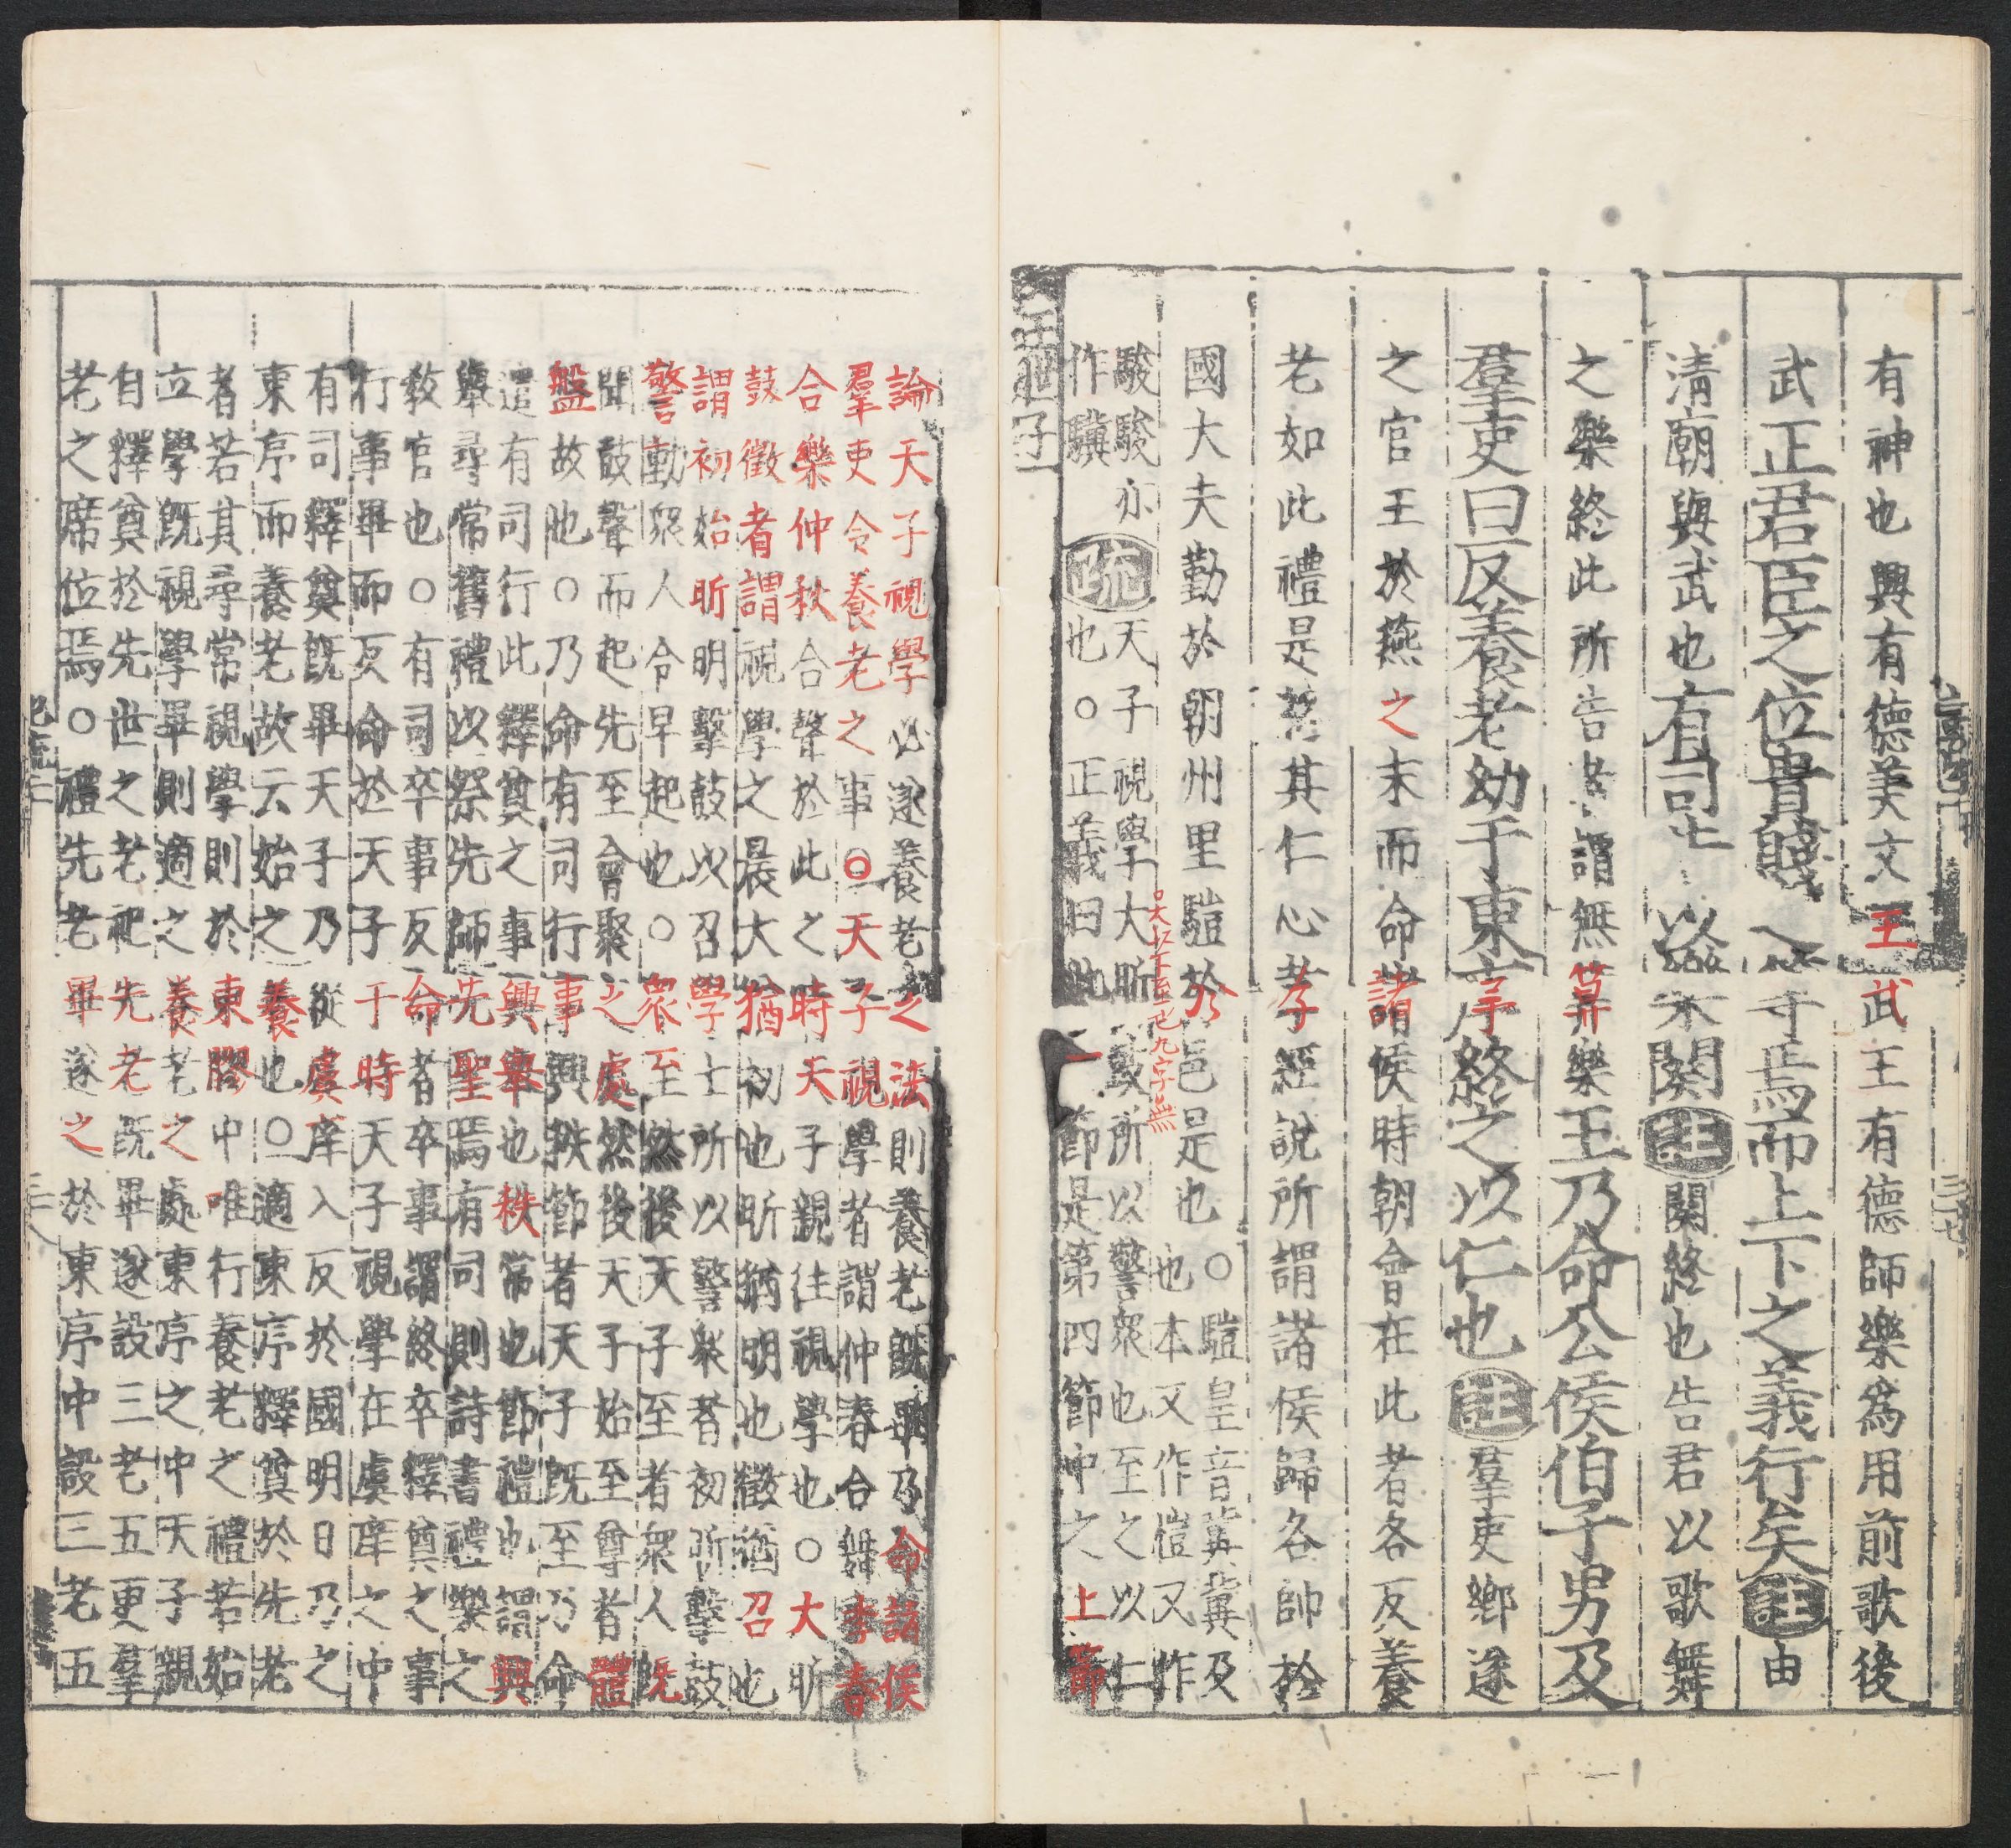 有神也興有德美文王武王有德師樂爲用前歌後
武正君臣之位貴賤 等焉而上下之義行矣註由
清廟與武也有司告以樂闋註闋終也告君以歌舞
之樂終此所告者謂無筭樂王乃命公侯伯子男及
羣吏曰反養老幼于東序終之以仁也註羣吏鄉遂
之官王於燕之末而命諸侯時朝會在此者各反養
老如此禮是 其仁心孝經說所謂諸侯歸各帥於
國大夫勤於朝州里驩於邑是也○驩皇音冀冀及
也本又作愷又作
○大 下至也九字無
駿駿亦
作驥
疏天子視學大昕鼓所以警衆也至之以仁
也○正義曰此一節是第四節中之上節
文王世子
論天子視學必遂養老之法則養老旣畢乃命諸侯
羣吏令養老之事○天子視學者謂仲春合舞季春
合樂仲秋合聲於此之時天子親往視學也○大昕
鼓徵者謂視學之晨大猶初也昕猶明也徵猶召也
謂初始昕明擊鼓以召學士所以警衆者初昕擊鼓
警動衆人令早起也○衆至然後天子至者衆人旣
聞鼓聲而起先至會聚之處然後天子始至尊者體
盤故也○乃命有司行事興秩節者天子旣至乃命
遣有司行此釋奠之事興舉也秩常也節禮也謂興
舉尋常舊禮以祭先師先聖焉有司則詩書禮樂之
敎官也○有司卒事反命者卒事謂終卒釋奠之事
行事畢而反命於天子于時天子視學在虞庠之中
有司釋奠旣畢天子乃從虞庠入反於國明日乃之
東序而養老故云始之養也○適東序釋奠於先老
者若其尋常視學則於東膠中唯行養老之禮若始
立學旣視學畢則適之養老之處東序之中天子親
自釋奠於先世之老祀先老旣畢遂設三老五更羣
老之席位焉○禮先老畢遂之於東序中設三老五